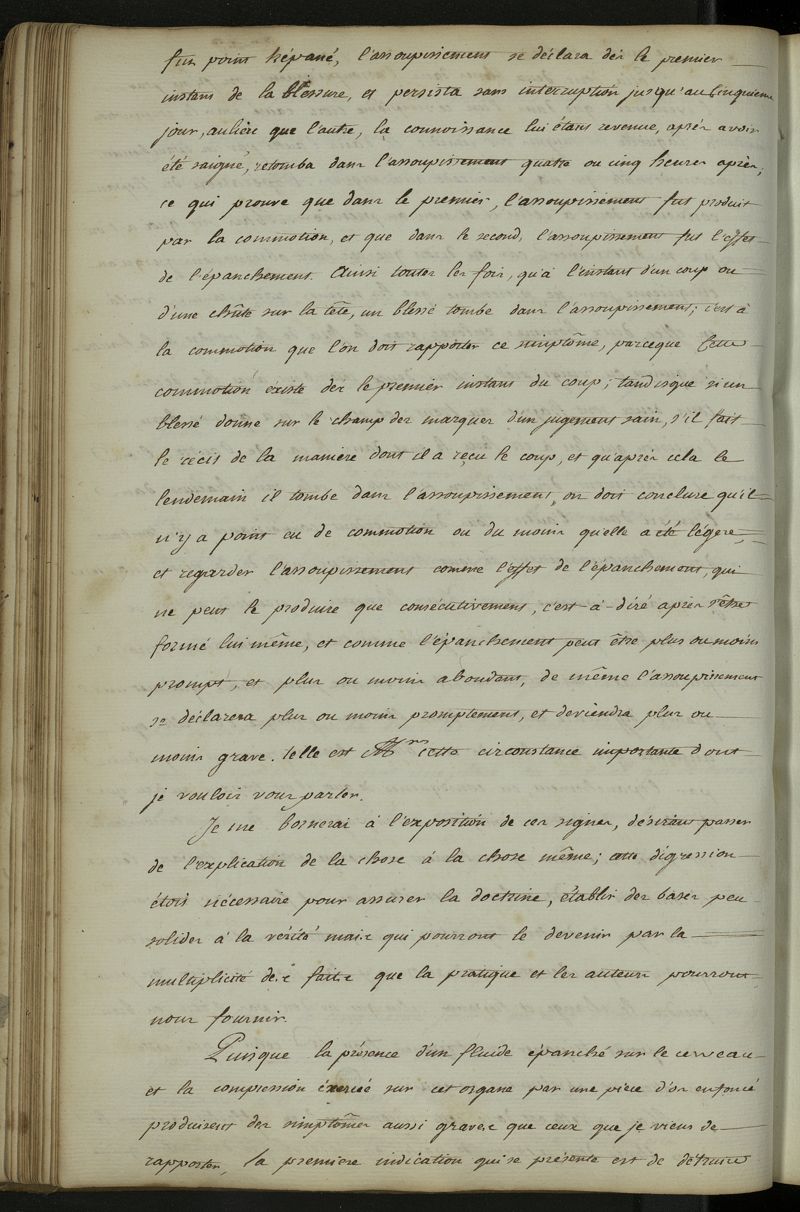 fut point trépané, l'assoupissement se déclara dès le premier
instant de la blessure, et persista sans interruption jusqu'au cinquieme
jour, aulieu que l'autre, la connoissance lui étant revenue, après avoir
été saigné, retomba dans l'assoupissement quatre ou cinq heures après,
ce qui prouve que dans le premier, l'assoupissement fut produit
par la commotion, et que dans le second, l'assoupissement fut l'effet
de l'épanchement. Ainsi toutes les fois, qu'à l'instant d'un coup ou
d'une chûte sur la tête, un blessé tombe dans l'assoupissement; c'est à
la commotion que l'on doit rapporter ce simptôme, parceque cette
commotion existe dès le premier instant du coup; tandisque si un
blessé donne sur le champ des marques d'un jugement sain, s'il fait
le récit de la maniere dont il a reçu le coup, et qu'après cela le
lendemain il tombe dans l'assoupissement, on doit conclure qu'il
n'y a point eu de commotion ou du moins qu'elle a été légere,
et regarder l'assoupissement comme l'effet de l'épanchement, qui
ne peut le produire que consécutivement, c'est-à-dire après s'être
formé lui même, et comme l'épanchement peut être plus ou moins
prompt, et plus ou moins abondant, de même l'assoupissement
se déclarera plus ou moins promptement, et deviendra plus ou
moins grave. telle est Mrs cette circonstance importante dont
je voulois vous parler.
Je me bornerai à l'exposition de ces signes, désirant passer
de l'explication de la chose à la chose même; cette digression
étoit nécessaire pour assurer la doctrine, établir des bases peu
solides à la vérité mais qui pourront le devenir par la
multiplicité des faits que la pratique et les auteurs pourront
nous fournir.
Puisque la présence d'un fluide épanché sur le cerveau
et la compression exercée sur cet organe par une piece d'os enfoncé
produisent des simptômes aussi graves que ceux que je viens de
rapporter, la premiere indication qui se présente est de détruire